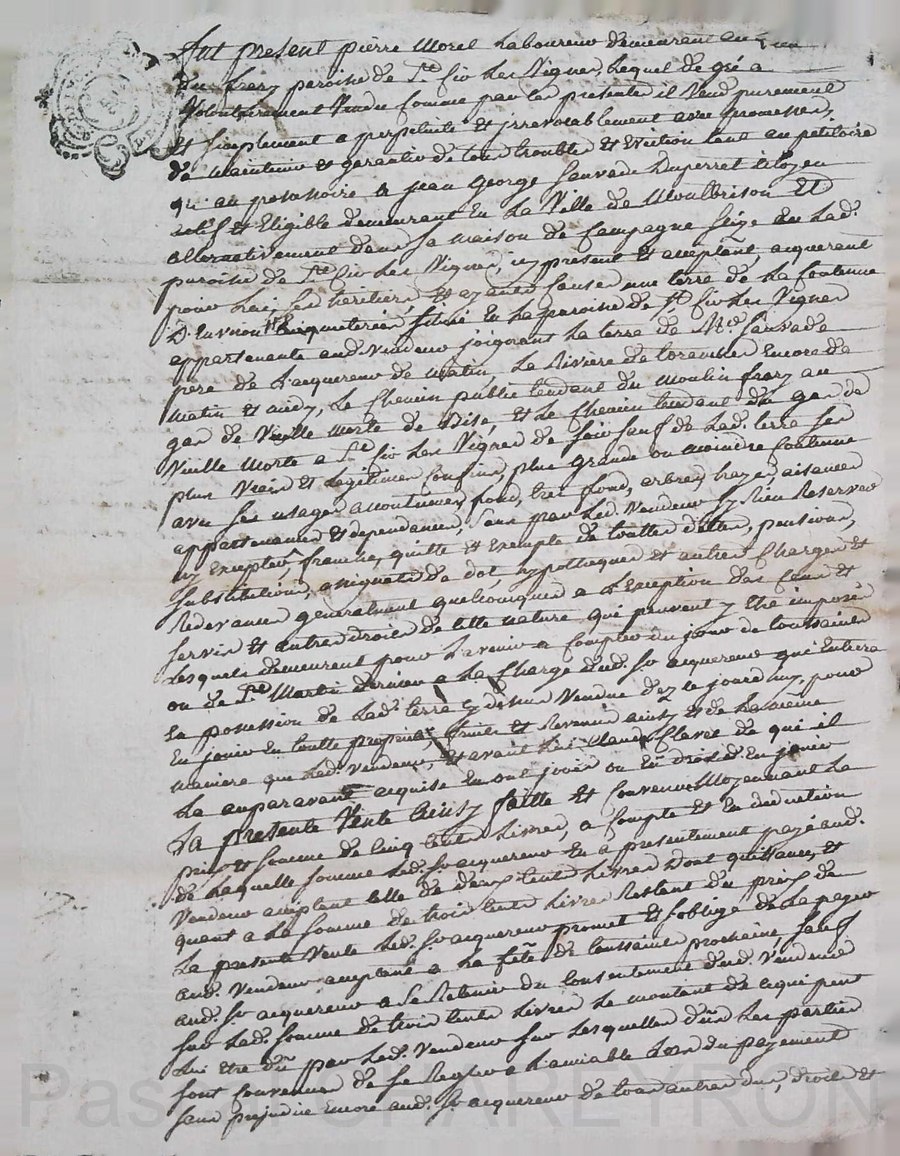 fut present pierre Morel Laboureur demeurant au
du frezy paroisse de Ste fiv Les Vignes, Lequel de gré a
Volontairement Vendu Comme par la presente il Vend purement
et simplement a perpetuité et irrevocablement avec promesses
de maintenir et garantir de tous troubles et Eviction tant au petitoire
qu au possessoire a jean George Sauvade Duperret Citoyen
actif et Eligible demeurant En La Ville de Montbrison et
alternativement dans sa maison de Campagne size En lad.
paroisse de Ste fiv Les Vignes, icy present et acceptant, acquerant
pour Lui, Ses heritiers et ayants Causes une terre de la Contenue
D'Environ Cinq meterées, Situé En La paroisse de St. fiv Les Vignes
appartenante aud. vendeur joignant La terre de Mr. Sauvade
pere de L'acquereur de matin, La Riviere de Encore de
matin et midy, Le Chemin public tendant du Moulin frezy au
gar de Vieille Morte de Bise, et Le Chemin tendant du gar de
Vieille Morte a Ste fiv Les Vignes de soir sauf de Lad. terre ses
plus Vrais et Legitimes Confins, plus grande ou moindre Contenue
avec ses usages fond, tres fond, arbres, hayes, aisances
appartenances et dependances, Sans par Led. Vendeur y Rien Reserver
ny Excepter franche, quitte et Exempte de touttes dettes, pensions,
Substitutions, assignats de dot, hypotheques et autres Charges et
Redevances generalment quelconques a L'Exception des Cens et
servis et autres droits de cette nature qui peuvent y être imposés
Lesquels demeurent pour L'avenir a Compter du jour de toussaint
ou de St. Martin dernier a La Charge dud. Sr acquereur qui Entrera
En possession de Lad. terre Cy dessus Vendue dez ce jourd'huy, pour
En jouir En toutte proprieté, fruits et Revenus ainsy et de La même
maniere que Led. Vendeur, et avant Lui Claude Clavel de qui il
La auparavant acquise En ont jouis ou Eu droit d'En jouir
La presente Vente Ainsy faitte et Convenue Moyennant Le
prix et somme de Cinq Cents Livres, a Compte et En deduction
de Laquelle somme Led. Sr acquereur En a presentement payé aud.
Vendeur acceptant Celle de deux Cents Livres Dont quittance, et
quant a La Somme de trois Cents Livres Restant du prix de
La presente Vente Led. Sr acquereur promet et s'oblige de La payer
aud. Vendeur acceptant a La fête de toussaint prochaine, sauf
aud. Sr acquereur a se Retenir du Consentement dud. Vendeur
sur Lad. Somme de trois Cents Livres Le montant de ce qui peut
Lui être dû par Led. Vendeur sur Lesquelles dûs Les parties
sont Convenues de se Regler a L'amiable Lors du payement
sans prejudice Encore aud. Sr acquereur de tous autres dus, droits et